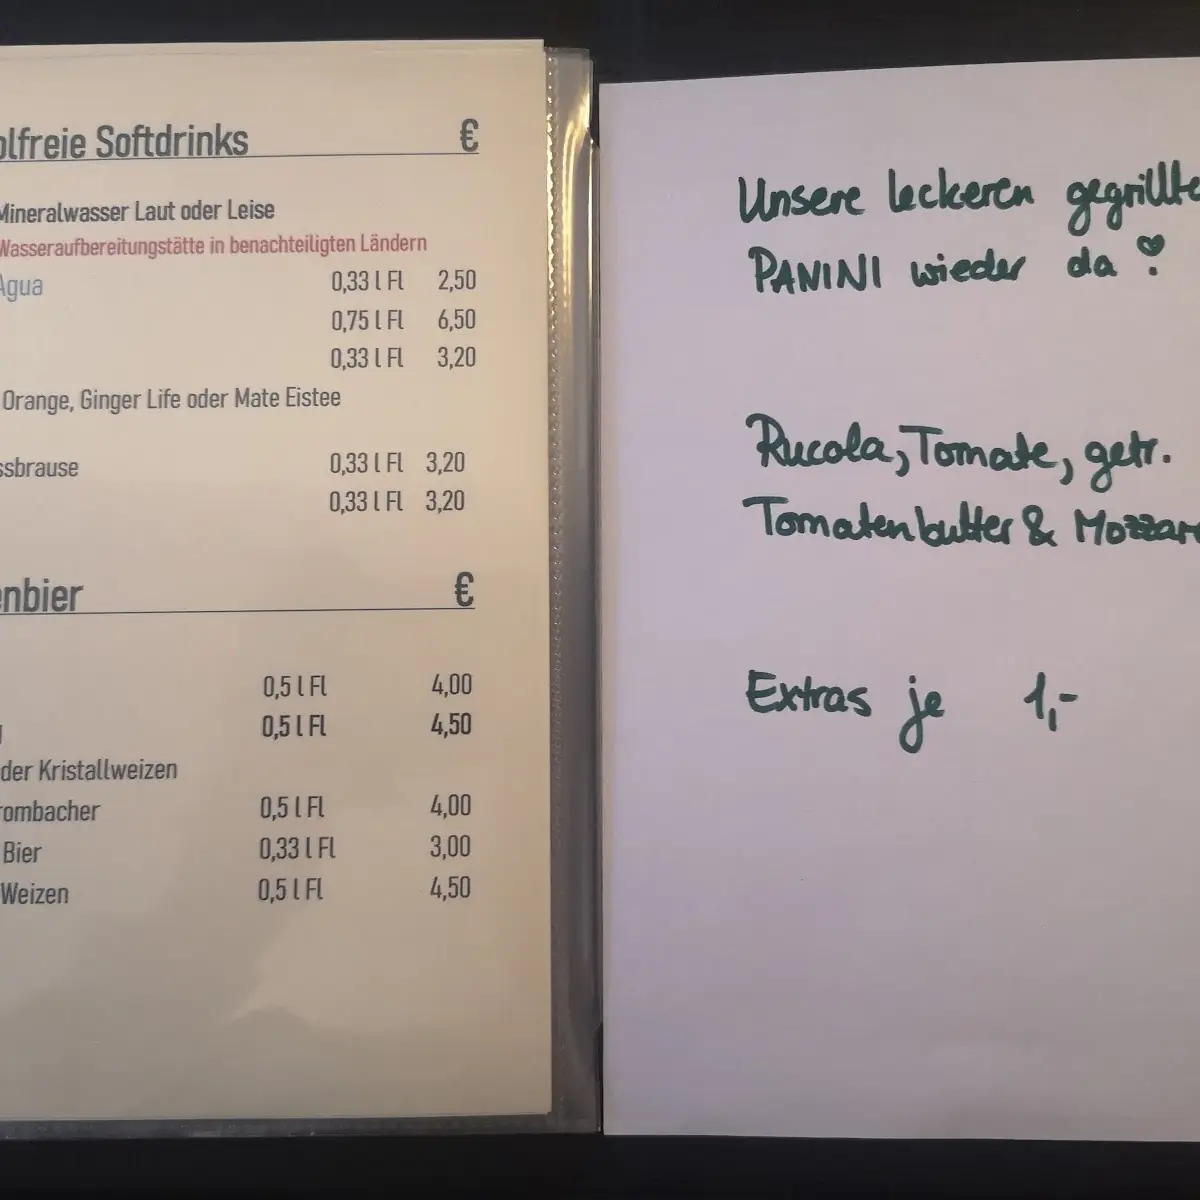 olfreie Softdrinks €
Mineralwasser Laut oder Leise
Wasseraufbereitungstätte in benachteiligten Ländern
Agua 0,33 l Fl 2,50
0,75 l Fl 6,50
0,33 l Fl 3,20
Orange, Ginger Life oder Mate Eistee
ssbrause 0,33 l Fl 3,20
0,33 l Fl 3,20
enbier €
0,5 l Fl 4,00
0,5 l Fl 4,50
der Kristallweizen
rombacher 0,5 l Fl 4,00
Bier 0,33 l Fl 3,00
Weizen 0,5 l Fl 4,50
Unsere leckeren gegrillte
PANINI wieder da !
Rucola, Tomate, getr.
Tomatenbutter & Mozzare
Extras je 1,-